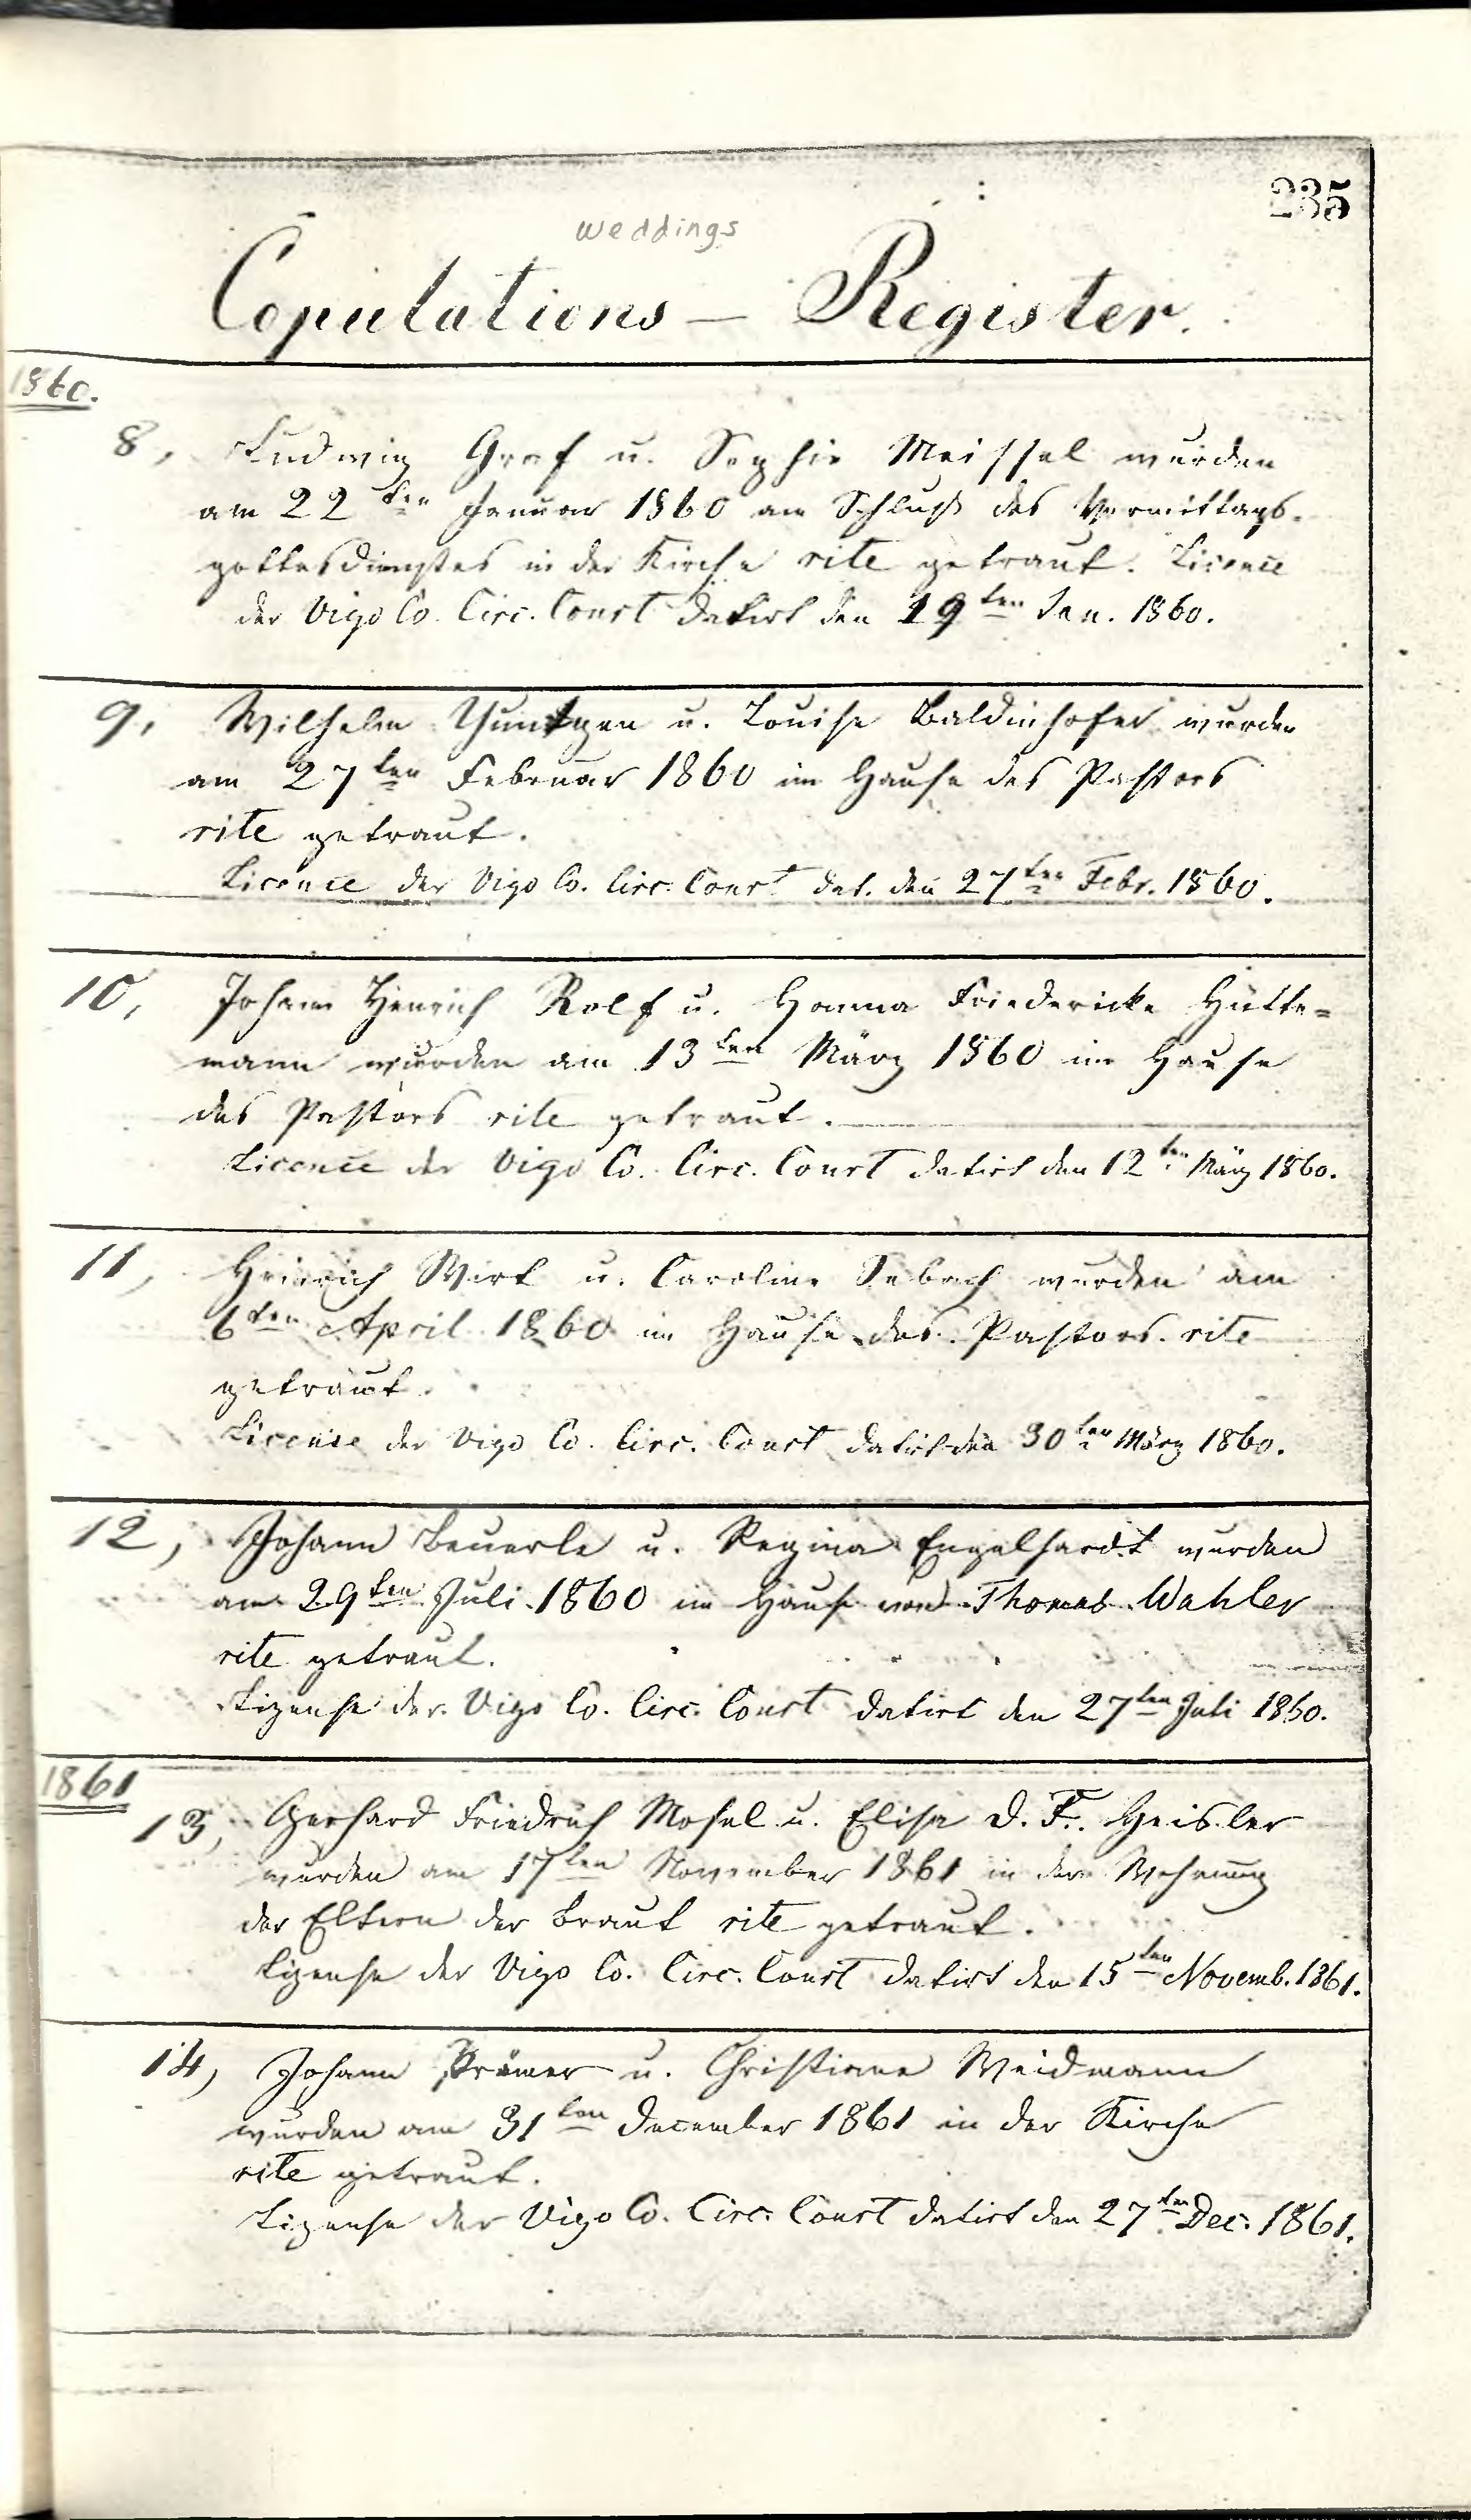 235
weddings
Copulations – Register.
1860.
8, Ludwig Graf u. Sophie Meissel wurden
am 22ten Januar 1860 am Schluß des Vormittags-
gottesdienstes in der Kirche rite getraut. Licence
der Vigo Co. Circ. Court datirt den 19ten Jan. 1860.
9, Wilhelm u. Louise Baldinhofer wurden
am 27ten Februar 1860 im Hause des Pastors
rite getraut.
Licence der Vigo Co. Circ. Court dat. den 27ten Febr. 1860.
10, Johann Henrich Rolf u. Hanna Friedericke Hütte=
mann wurden am 13ten März 1860 im Hause
des Pastors rite getraut.
Licence der Vigo Co. Circ. Court datirt den 12ten März 1860.
11, Heinrich Wirt u. Caroline Sebach wurden am
6ten April 1860 im Hause des Pastors rite
getraut.
License der Vigo Co. Circ. Court datirt den 30ten März 1860.
12, Johann Beuerle u. Regina Engelhardt wurden
am 29ten Juli 1860 im Hause von Thomas Wahler
rite getraut.
Lizense der Vigo Co. Circ. Court datirt den 27ten Juli 1860.
1861
13, Gerhard Friedrich Mosel u. Elise D. F. Geisler
wurden am 17ten November 1861 in der Wohnung
der Eltern der Braut rite getraut.
Lizense der Vigo Co. Circ. Court datirt den 15ten Novemb. 1861.
14, Johann Krämer u. Christiane Weidmann
wurden am 31ten December 1861 in der Kirche
rite getraut.
Lizense der Vigo Co. Circ. Court datirt den 27ten Dec. 1861.